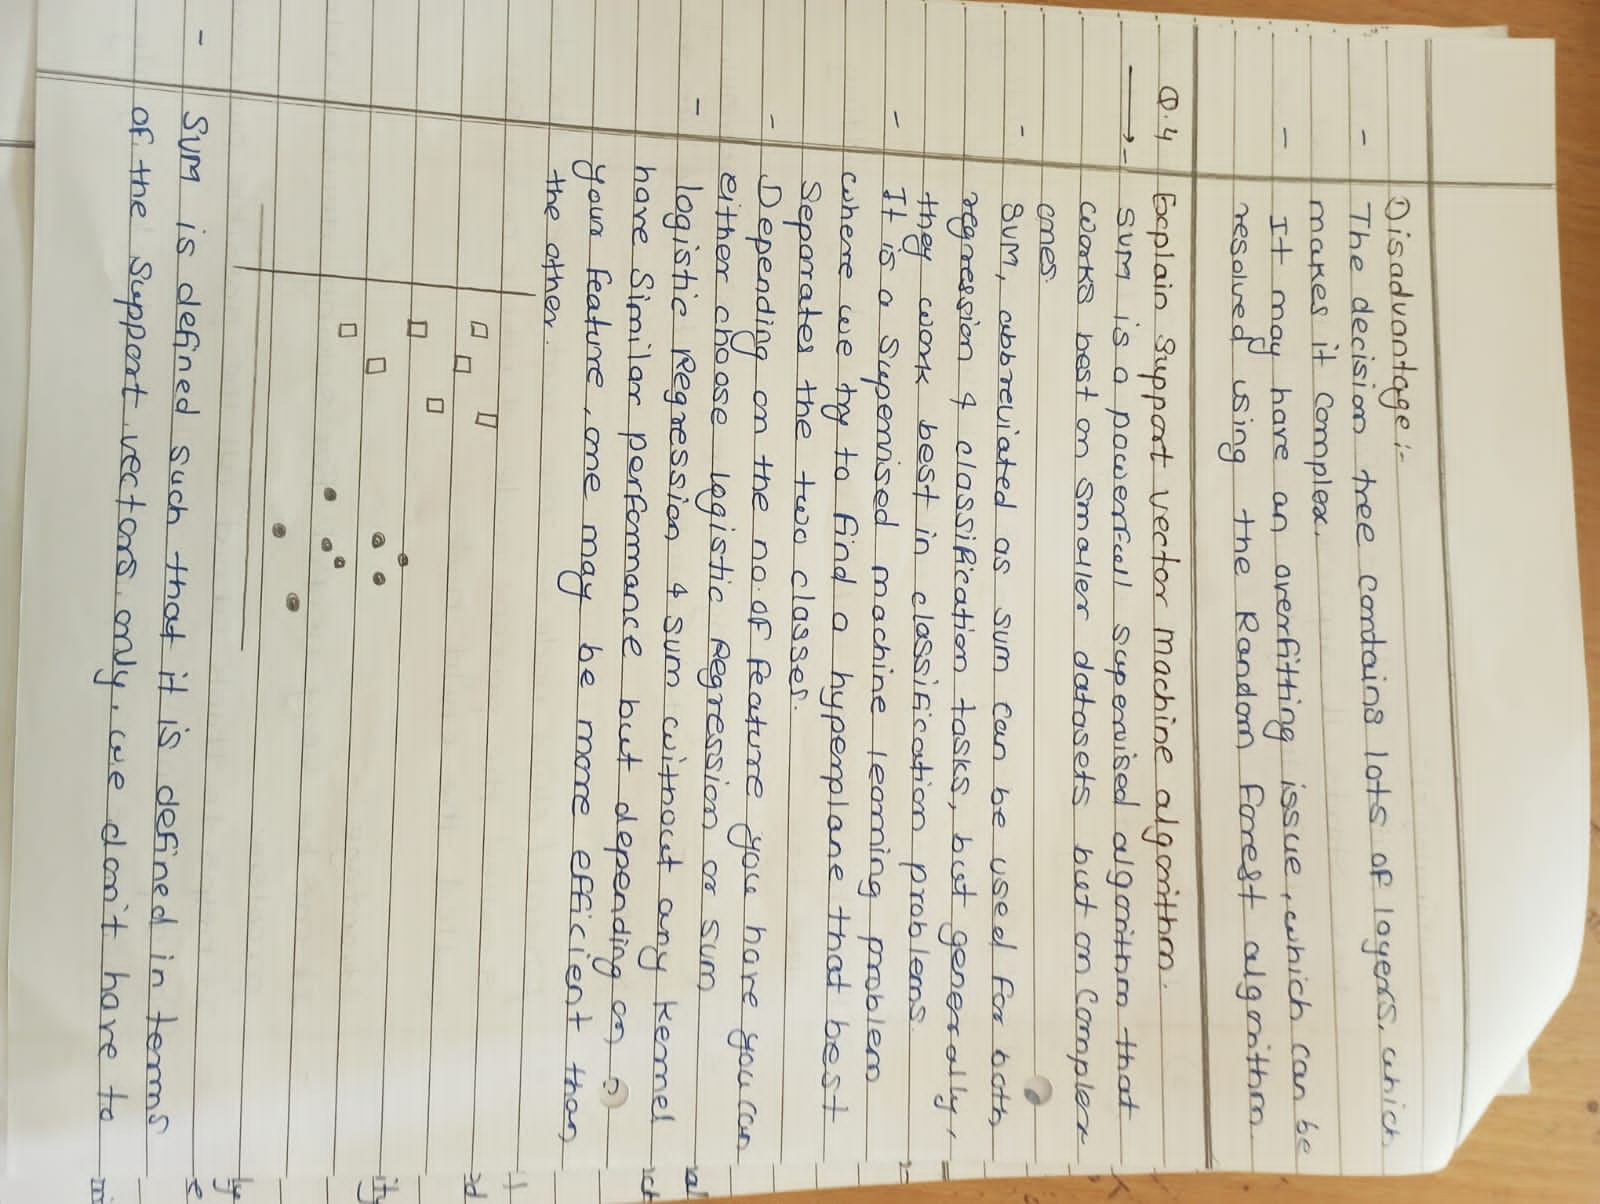 Disadvantage:-
- The decision tree contains lots of layers, which
makes it complex.
- It may have an overfitting issue, which can be
resolved using the Random Forest algorithm.
Q.4 Explain support vector machine algorithm.
→ - SVM is a powerfull supervised algorithm that
works best on smaller datasets but on complex
ones.
- SVM, abbreviated as SVM can be used for both
regression & classification tasks, but generally,
they work best in classification problems
- It is a supervised machine learning problem
where we try to find a hyperplane that best
Separates the two classes.
- Depending on the no. of feature you have you can
either choose logistic Regression or SVM
- logistic Regression & SVM without any kernel
have Similar performance but depending on
your feature, one may be more efficient than
the other.
- SVM is defined such that it is defined in terms
of the support vectors only, we don't have to